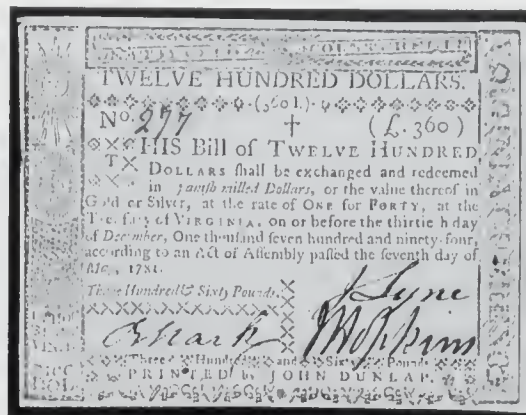 TWELVE HUNDRED DOLLARS.
(360 l.)
No. 277 (£. 360)
THIS Bill of TWELVE HUNDRED
DOLLARS ſhall be exchanged and redeemed
in Spaniſh milled Dollars, or the value thereof in
Gold or Silver, at the rate of ONE for FORTY, at the
Treaſury of VIRGINIA, on or before the thirtieth day
of December, One thouſand ſeven hundred and ninety-four,
according to an Act of Aſſembly paſſed the ſeventh day of
May, 1781.
Three Hundred & Sixty Pounds.
J Lyne
J Hopkins
Three Hundred and Sixty Pounds
PRINTED by JOHN DUNLAP